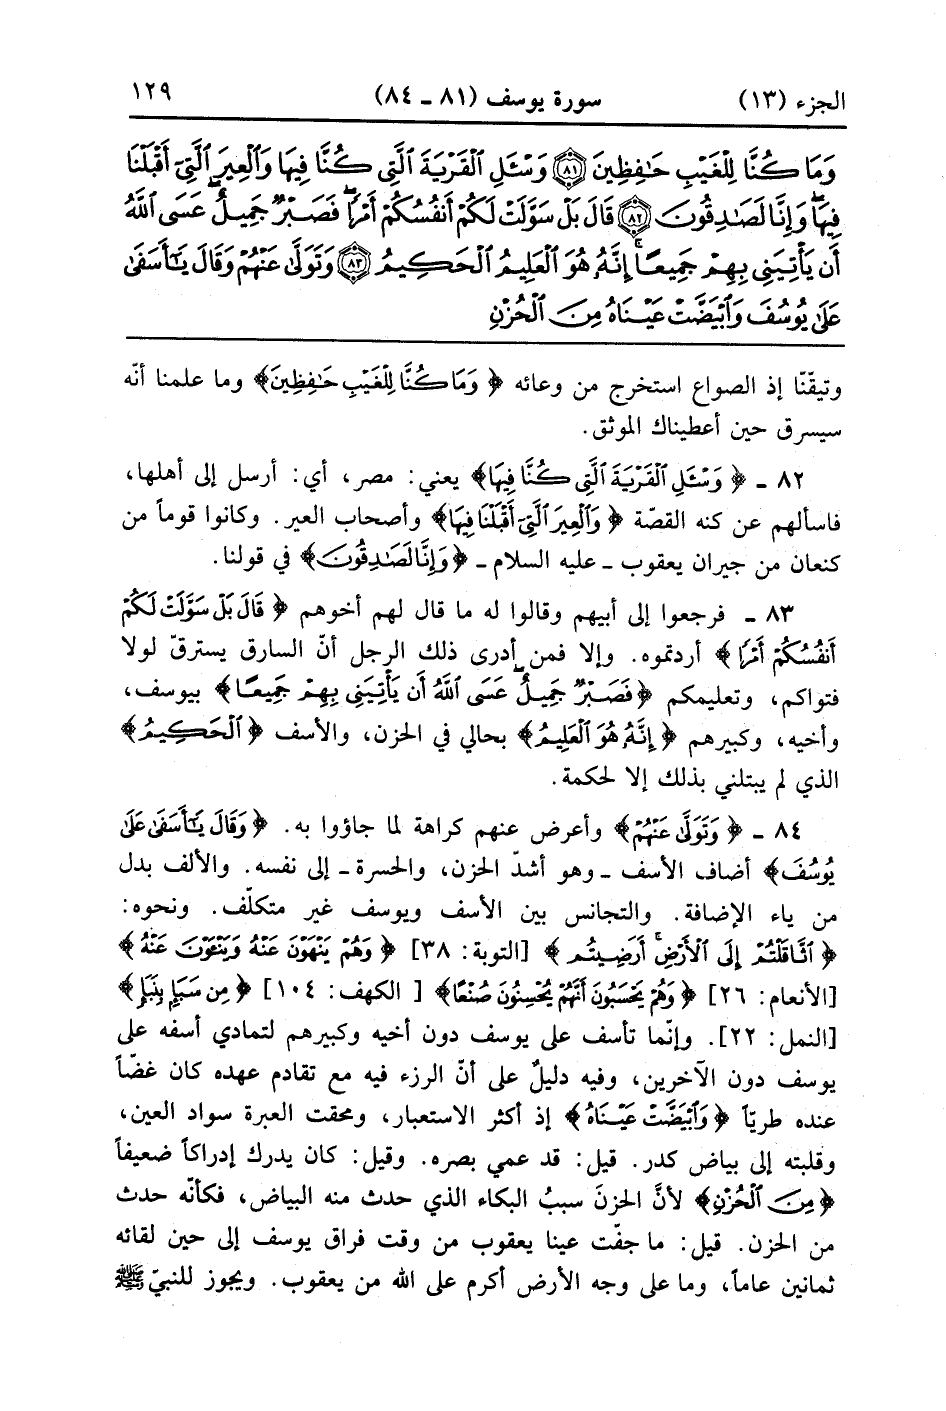 الجزء (١٣) سورة يوسف (٨١ ـ ٨٤) ١٢٩
وَمَا كُنَّا لِلْغَيْبِ حَـٰفِظِينَ ۝٨١ وَسْـَٔلِ ٱلْقَرْيَةَ ٱلَّتِى كُنَّا فِيهَا وَٱلْعِيرَ ٱلَّتِىٓ أَقْبَلْنَا
فِيهَا ۖ وَإِنَّا لَصَـٰدِقُونَ ۝٨٢ قَالَ بَلْ سَوَّلَتْ لَكُمْ أَنفُسُكُمْ أَمْرًا ۖ فَصَبْرٌ جَمِيلٌ ۖ عَسَى ٱللَّهُ
أَن يَأْتِيَنِى بِهِمْ جَمِيعًا ۚ إِنَّهُۥ هُوَ ٱلْعَلِيمُ ٱلْحَكِيمُ ۝٨٣ وَتَوَلَّىٰ عَنْهُمْ وَقَالَ يَـٰٓأَسَفَىٰ
عَلَىٰ يُوسُفَ وَٱبْيَضَّتْ عَيْنَاهُ مِنَ ٱلْحُزْنِ
وتيقّنّا إذ الصواع استخرج من وعائه ﴿ وَمَا كُنَّا لِلْغَيْبِ حَـٰفِظِينَ﴾ وما علمنا أنّه
سيسرق حين أعطيناك الموثق.
٨٢ ـ ﴿ وَسْـَٔلِ ٱلْقَرْيَةَ ٱلَّتِى كُنَّا فِيهَا﴾ يعني: مصر، أي: أرسل إلى أهلها،
فاسألهم عن كنه القصّة ﴿ وَٱلْعِيرَ ٱلَّتِىٓ أَقْبَلْنَا فِيهَا﴾ وأصحاب العير. وكانوا قوماً من
كنعان من جيران يعقوب ـ عليه السلام ـ ﴿وَإِنَّا لَصَـٰدِقُونَ﴾ في قولنا.
٨٣ ـ فرجعوا إلى أبيهم وقالوا له ما قال لهم أخوهم ﴿ قَالَ بَلْ سَوَّلَتْ لَكُمْ
أَنفُسُكُمْ أَمْرًا ﴾ أردتموه. وإلا فمن أدرى ذلك الرجل أنّ السارق يسترقّ لولا
فتواكم، وتعليمكم ﴿فَصَبْرٌ جَمِيلٌ ۖ عَسَى ٱللَّهُ أَن يَأْتِيَنِى بِهِمْ جَمِيعًا ﴾ بيوسف،
وأخيه، وكبيرهم ﴿ إِنَّهُۥ هُوَ ٱلْعَلِيمُ﴾ بحالي في الحزن، والأسف ﴿ٱلْحَكِيمُ﴾
الذي لم يبتلني بذلك إلا لحكمة.
٨٤ ـ ﴿ وَتَوَلَّىٰ عَنْهُمْ﴾ وأعرض عنهم كراهة لما جاؤوا به. ﴿وَقَالَ يَـٰٓأَسَفَىٰ عَلَىٰ
يُوسُفَ﴾ أضاف الأسف ـ وهو أشدّ الحزن، والحسرة ـ إلى نفسه. والألف بدل
من ياء الإضافة. والتجانس بين الأسف ويوسف غير متكلّف. ونحوه:
﴿ ٱثَّاقَلْتُمْ إِلَى ٱلْأَرْضِ ۚ أَرَضِيتُم ﴾ [التوبة: ٣٨] ﴿ وَهُمْ يَنْهَوْنَ عَنْهُ وَيَنْـَٔوْنَ عَنْهُ ﴾
[الأنعام: ٢٦] ﴿ وَهُمْ يَحْسَبُونَ أَنَّهُمْ يُحْسِنُونَ صُنْعًا﴾ [ الكهف: ١٠٤] ﴿ مِن سَبَإٍ بِنَبَإٍ ﴾
[النمل: ٢٢]. وإنّما تأسف على يوسف دون أخيه وكبيرهم لتمادي أسفه على
يوسف دون الآخرين، وفيه دليلٌ على أنّ الرزء فيه مع تقادم عهده كان غضّاً
عنده طريّاً ﴿ وَٱبْيَضَّتْ عَيْنَاهُ﴾ إذ أكثر الاستعبار، ومحقت العبرة سواد العين،
وقلبته إلى بياض كدر. قيل: قد عمي بصره. وقيل: كان يدرك إدراكاً ضعيفاً
﴿مِنَ ٱلْحُزْنِ﴾ لأنَّ الحزنَ سببُ البكاء الذي حدث منه البياض، فكأنّه حدث
من الحزن. قيل: ما جفّت عينا يعقوب من وقت فراق يوسف إلى حين لقائه
ثمانين عاماً، وما على وجه الأرض أكرم على الله من يعقوب. ويجوز للنبيّ ﷺ